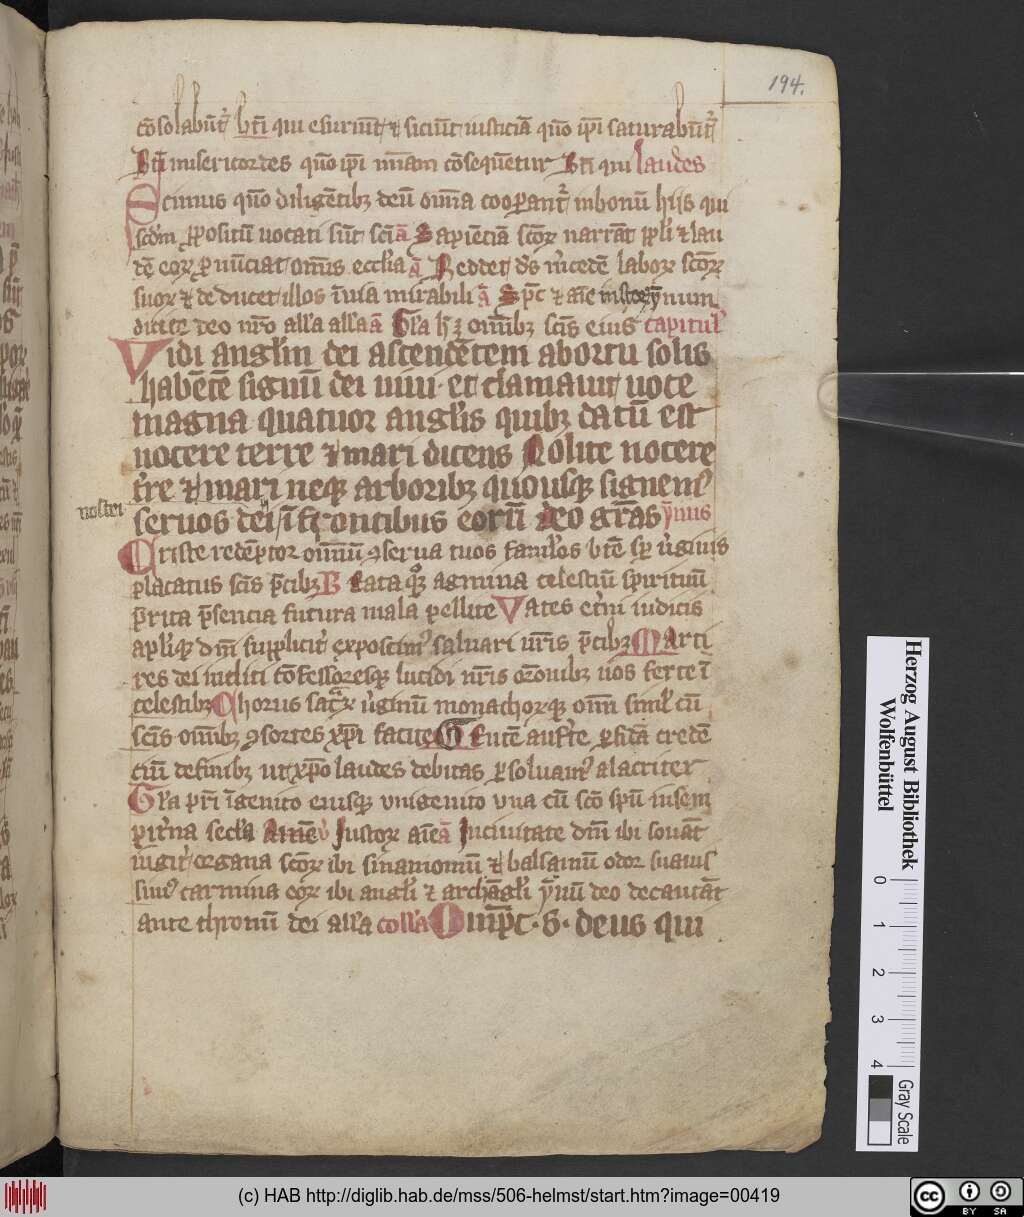 194.
cōsolabūt᷑ bt̄i qui esuriūt ⁊ siciūt iusticiā qūo ip̄i saturabūt᷑
Bt̄i misericordes qūo ip̄i mīam cōsequētur Bt̄i qui laudes
Scimus qūo diligētibꝫ deū om̄ia cooꝑant᷑ in bonū hijs qui
scdm̄ ꝓpositū uocati sūt sc̄i ā Sapiēciā sc̄oꝝ narrāt ppl̄i ⁊ lau
dē eoꝝ ꝓnūciat om̄is eccl̄ia ā Reddet ds̄ m̄cedē laboꝝ sc̄oꝝ
suoꝝ ⁊ deducet illos ī uia mirabili ā Sp̄c ⁊ aīe iustoꝝ ẏmnum
dicite deo nr̄o all̓a all̓a ā Gl̓a h̄ ē om̄ibꝫ sc̄is eius capitul᷑
Vidi angl̓m dei ascendētem ab ortu solis
habētē signū dei uiui · et clamauit uoce
magna quatuor angl̓is quibꝫ datū est
nocere terre ⁊ mari dicens Nolite nocere
tr̄e ⁊ mari neqꝫ arboribꝫ quousqꝫ signemꝰ
nostri
seruos dei ī frontibus eorū deo grās ẏmnus
Criste redēptor om̄iū ꝯserua tuos famul̓os btē sp̄ uirginis
placatus sc̄is p̄cibꝫ Beata qꝫ agmina celestiū spirituū
p̄rita p̄sencia futura mala pellite Vates et̓ni iudicis
apl̓iqꝫ dn̄i suppliciter exposcimꝰ saluari ur̄is p̄cibꝫ Marti
res dei incliti cōfessoresqꝫ lucidi ur̄is or̄onibꝫ uos ferte ī
celestibꝫ Chorus sacraꝝ uirginū monachoꝝqꝫ om̄ simul cū
sc̄is om̄ibꝫ ꝯsortes xp̄i facite Gentē auferte ꝑfidā credē
ciū de finibꝫ ut xp̄o laudes debitas ꝑsoluamꝰ alacriter
Gl̓a pr̄i īgenito eiusqꝫ unigenito una cū sc̄o spū in sem
pit̓na sec̄la Amē v̓ Iustoꝝ aīe ā In ciuitate dn̄i ibi sonāt
iugit̓ organa sc̄oꝝ ibi sinamomū ⁊ balsamū odor suauis
simꝰ carmina eoꝝ ibi angl̓i ⁊ archāgl̓i ẏmnū deo decantāt
ante thronū dei all̓a coll̓a Omp̄c · S · deus qui
Herzog August Bibliothek
Wolfenbüttel
0 1 2 3 4
Gray Scale
(c) HAB http://diglib.hab.de/mss/506-helmst/start.htm?image=00419
cc BY SA